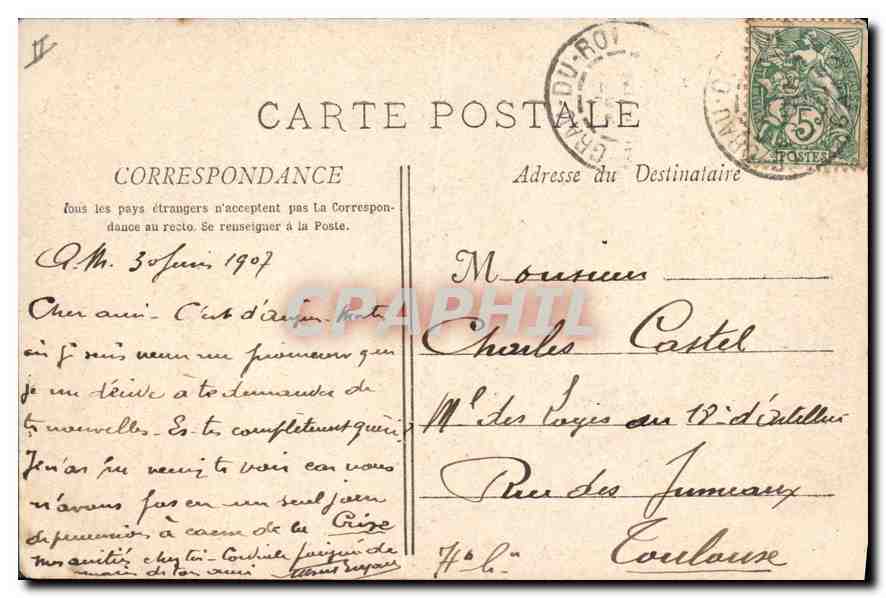 II
GRAU-DU-ROI
GRAU-D
5
POSTES
CARTE POSTALE
CORRESPONDANCE
Tous les pays étrangers n'acceptent pas La Correspon-
dance au recto. Se renseigner à la Poste.
Adresse du Destinataire
A.M. 30 Juin 1907
Cher ami - C'est d'aigues-Mortes
où je suis venu me promener que
je me décide à te demander de
tes nouvelles - Es-tu complètement guéri?
Je n'ai pu venir te voir car nous
n'avons pas eu un seul jour
de permission à cause de la Crise
mes amitiés chez toi - Cordiale poignée de
main de ton ami
Monsieur
Charles Castel
Mal des Logis au 18e d'artillerie
Rue des Jumeaux
Toulouse
Hte Gne
CPAPHIL